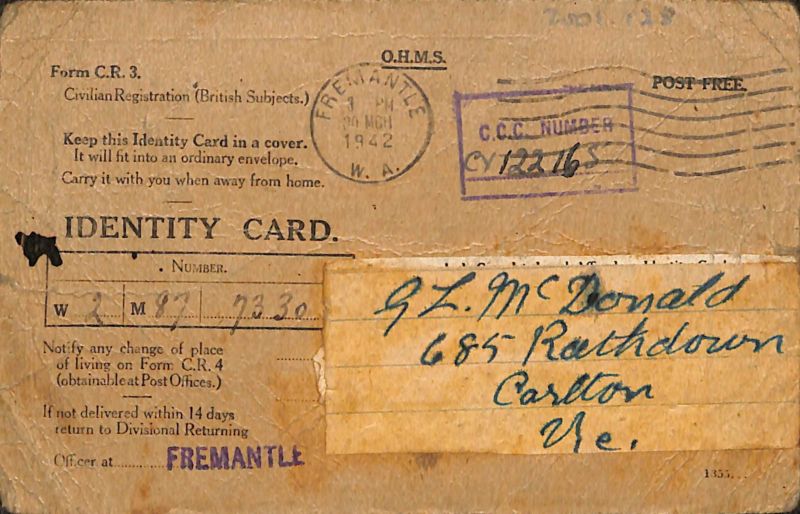 2001.128
O.H.M.S.
Form C.R. 3.
Civilian Registration (British Subjects.)
POST FREE.
FREMANTLE
PM
30 MCH
1942
W. A.
C.C.C. NUMBER
CV 12216 S
Keep this Identity Card in a cover.
It will fit into an ordinary envelope.
Carry it with you when away from home.
IDENTITY CARD.
NUMBER.
W 2 M 87 7330
G L. McDonald
685 Rathdown
Carlton
Vic.
Notify any change of place
of living on Form C.R. 4
(obtainable at Post Offices.)
If not delivered within 14 days
return to Divisional Returning
Officer at FREMANTLE